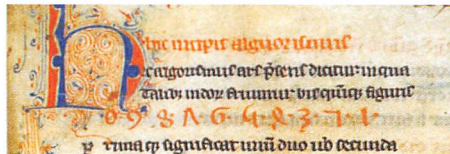 Hinc incipit algorismus
Hec algorismus ars p̄sens dicitur in qua
Talibꝫ indoꝝ fruimur bis quinqꝫ figuris
0 9 8 7 6 5 4 3 2 1
Prima qꝫ significat unū duo ūo secunda